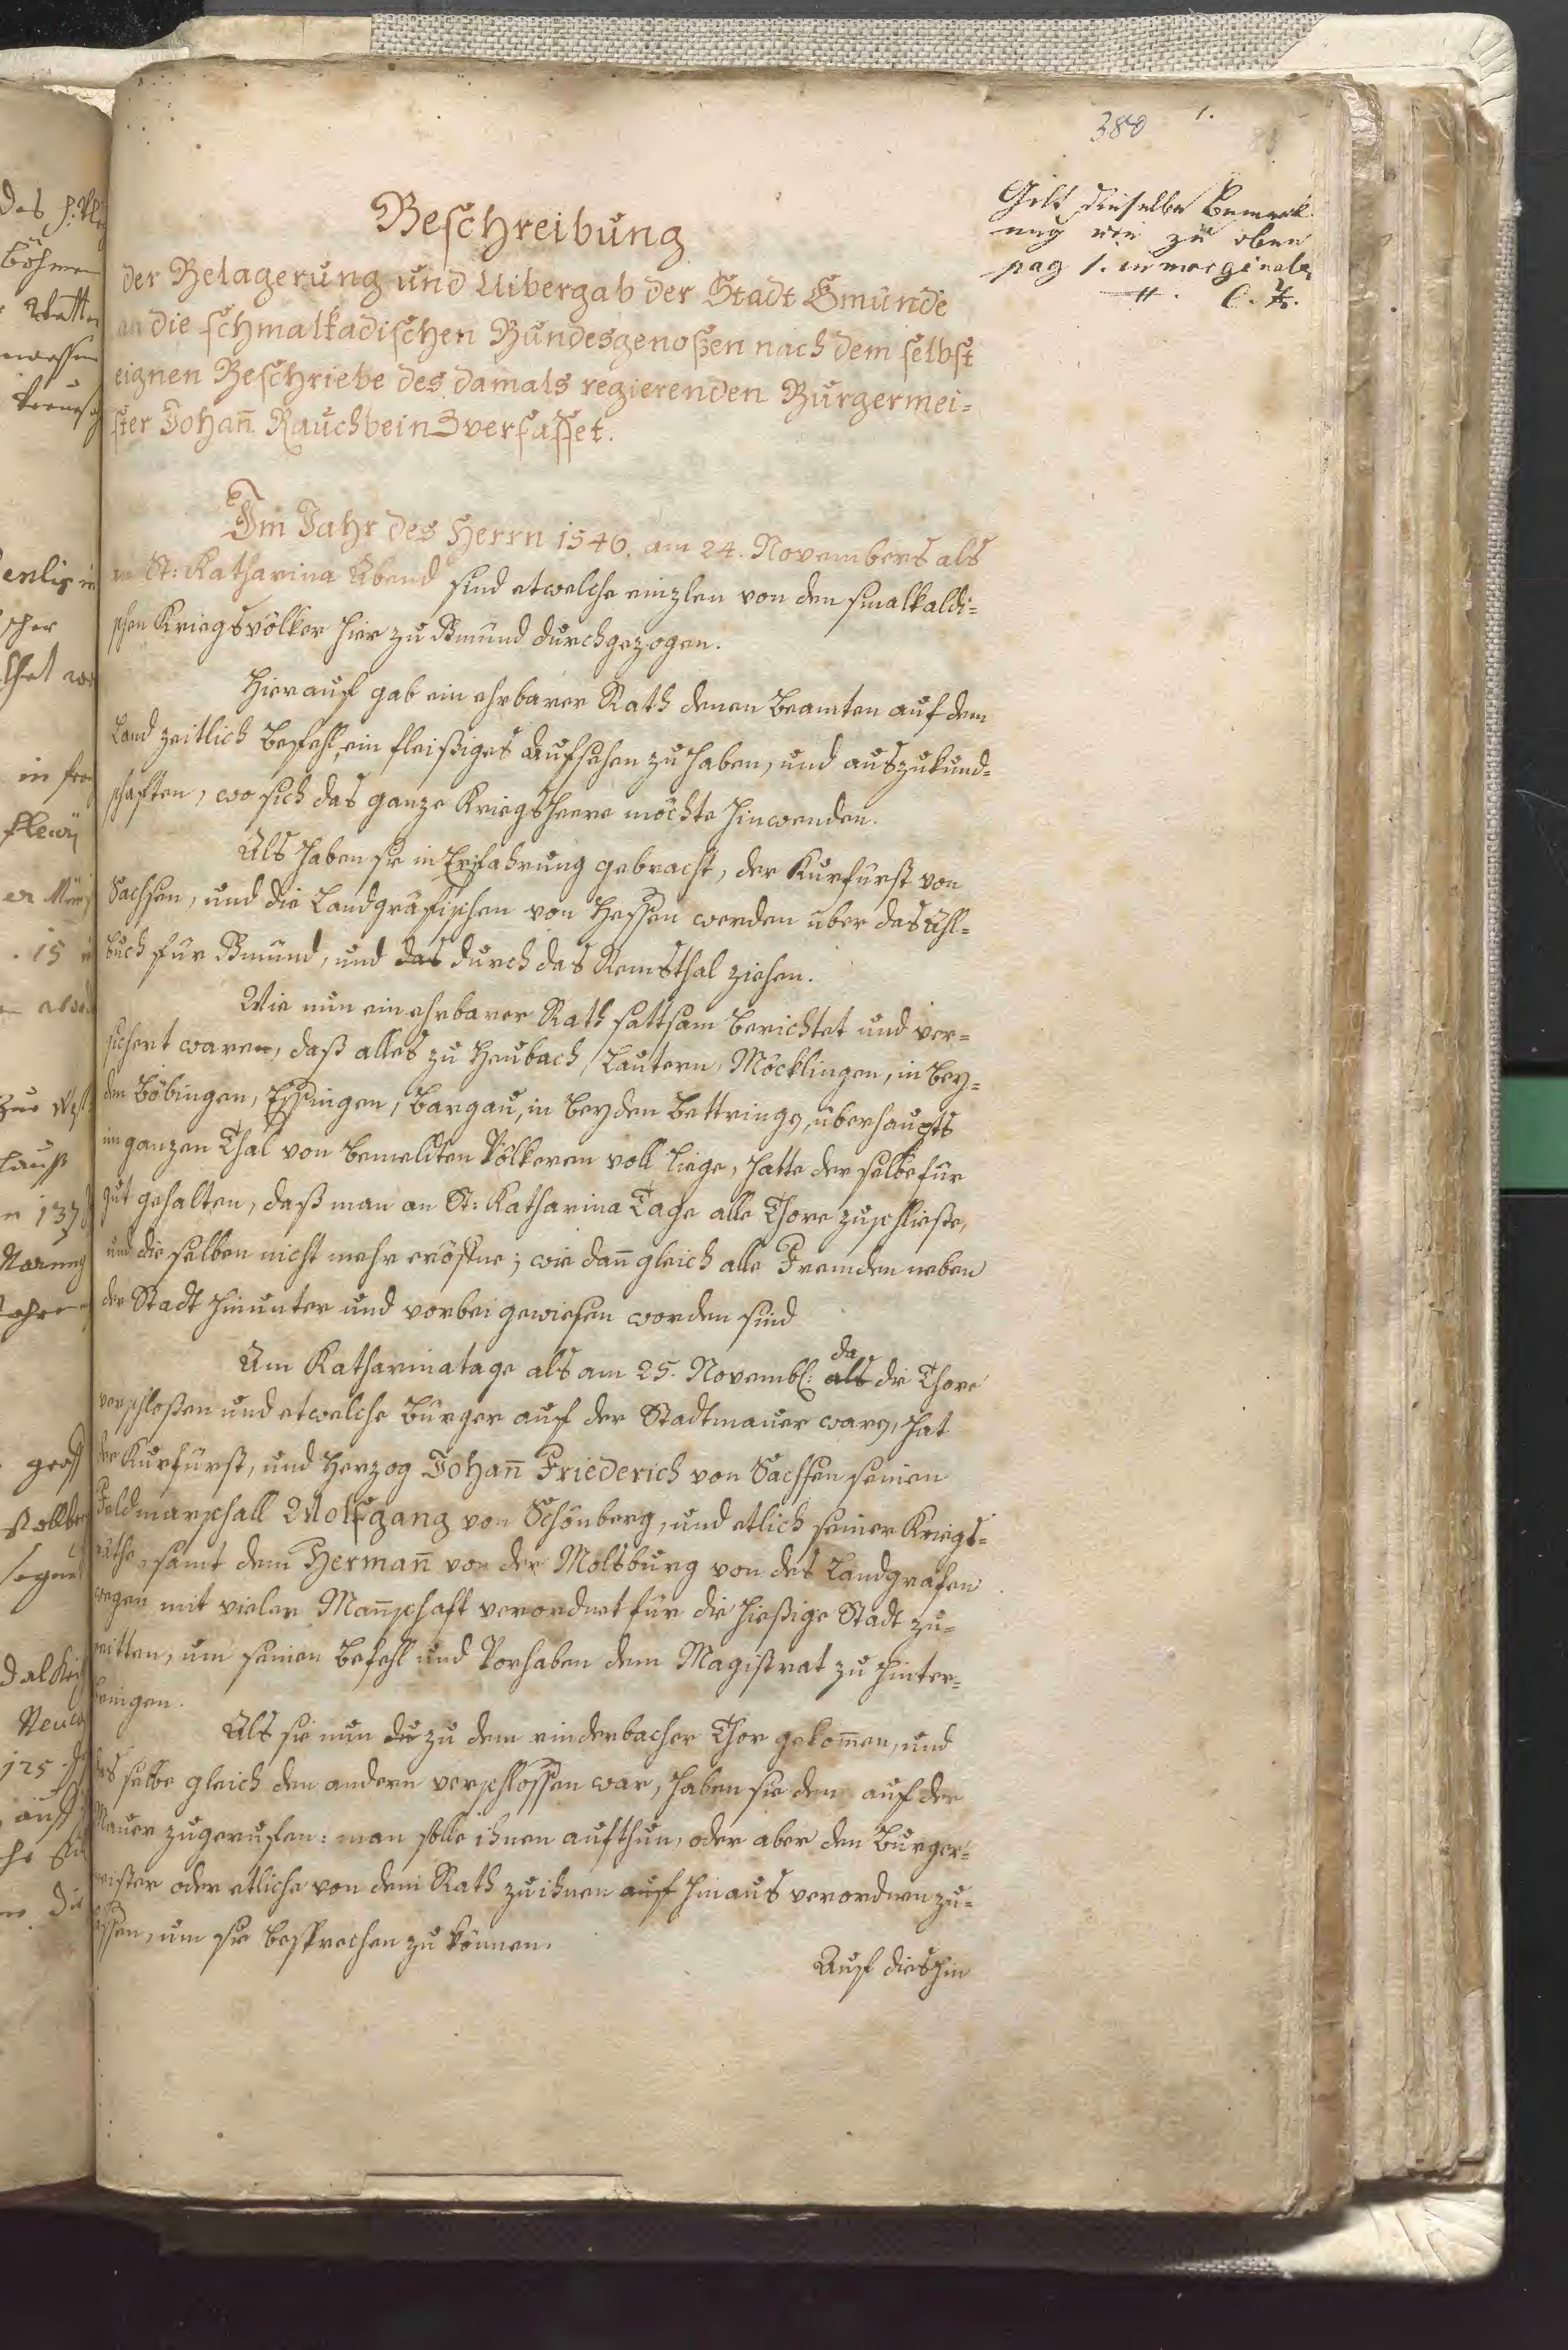 380 1.
Gilt dieselbe Bemerk
ung wie zu oben
pag 1. in margine
Beschreibung
der Belagerung und Uibergab der Stadt Gmünde
an die schmalkadischen Bundesgenoßen nach dem selbst
eignen Beschriebe des damals regierenden Burgermei=
ster Johañ Rauchbeins verfasset.
Im Jahr des Herrn 1546. am 24. Novembers als
an St: Katharina Abend sind etwelche einzlen von den smalkaldi=
schen Kriegsvölker hier zu Gmünd durchgezogen.
Hierauf gab ein ehrbarer Rath denen Beamten auf dem
Land zeitlich Befehl, ein fleißiges Aufsehen zu haben, und auszukund=
schaften, wo sich das ganze Kriegsheere möchte hinwenden.
Als haben sie in Erfahrung gebracht, der Kurfürst von
Sachsen, und die Landgräfischen von Hessen werden über das Ahl=
buch für Gmünd, und das durch das Remsthal ziehen.
Wie nun ein ehrbarer Rath sattsam berichtet und ver=
sichert waren, daß alles zu Heubach, Lautern, Möcklingen, in bey=
den Böbingen, Essingen, Bargau, in beyden Bettringen, überhaupts
im ganzen Thal von bemeldten Völkeren voll liege, hatte derselbe für
gut gehalten, daß man an St: Katharina Tage alle Thore zuschließe,
und dieselben nicht mehr eröffne; wie dañ gleich alle Fremden neben
der Stadt hinunter und vorbei gewiesen worden sind
Am Katharinatage als am 25. Novemb: als da die Thore
verschloßen und etwelche Bürger auf der Stadtmauer waren, hat
der Kurfürst, und Herzog Johañ Friederich von Sachsen seinen
Feldmarschall Wolfgang von Schönberg, und etlich seiner Kriegs=
räthe, samt dem Hermañ von der Molsburg von des Landgrafen
wegen mit vieler Mañschaft verordnet für die hießige Stadt zu=
reitten, um seinen Befehl und Vorhaben dem Magistrat zu hinter=
bringen.
Als sie nun du zu dem rinderbacher Thor gekom̄en, und
das selbe gleich den andern verschlossen war, haben sie den auf der
Mauer zugerufen: man solle ihnen aufthun, oder aber den Burger=
meister oder etliche von dem Rath zu ihnen auf hinaus verordnen zu=
lassen, um sie besprechen zu können.
Auf dieshin